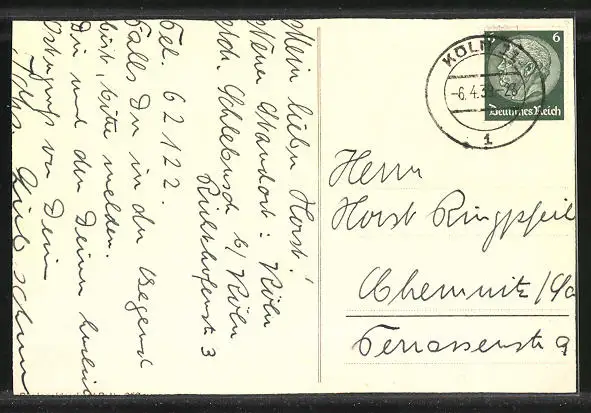 Mein lieber Horst!
Neuer Standort: Köln
Schlebusch b/ Köln
Richthofenstr 3
Tel. 62122.
Falls Du in der Gegend
bist, bitte melden.
Dir und den Deinen herzliche
Ostergrüsse von Dein
KÖLN
-6.4.3
1
6
Deutsches Reich
Herrn
Horst Ringpfeil
Chemnitz/Sa
Terrassenstr 9